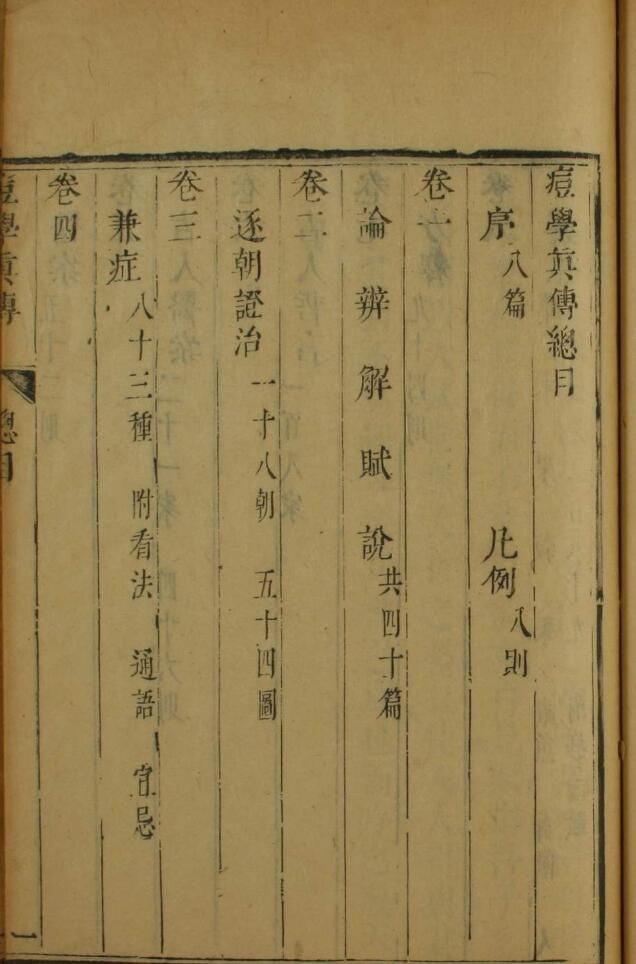 痘學眞傳總目
序 八篇 凡例 八則
卷一
論辨解賦說 共四十篇
卷二
逐朝證治 一十八朝 五十四圖
卷三
兼症 八十三種 附看法 通語 宜忌
卷四
痘學眞傳 總目 一